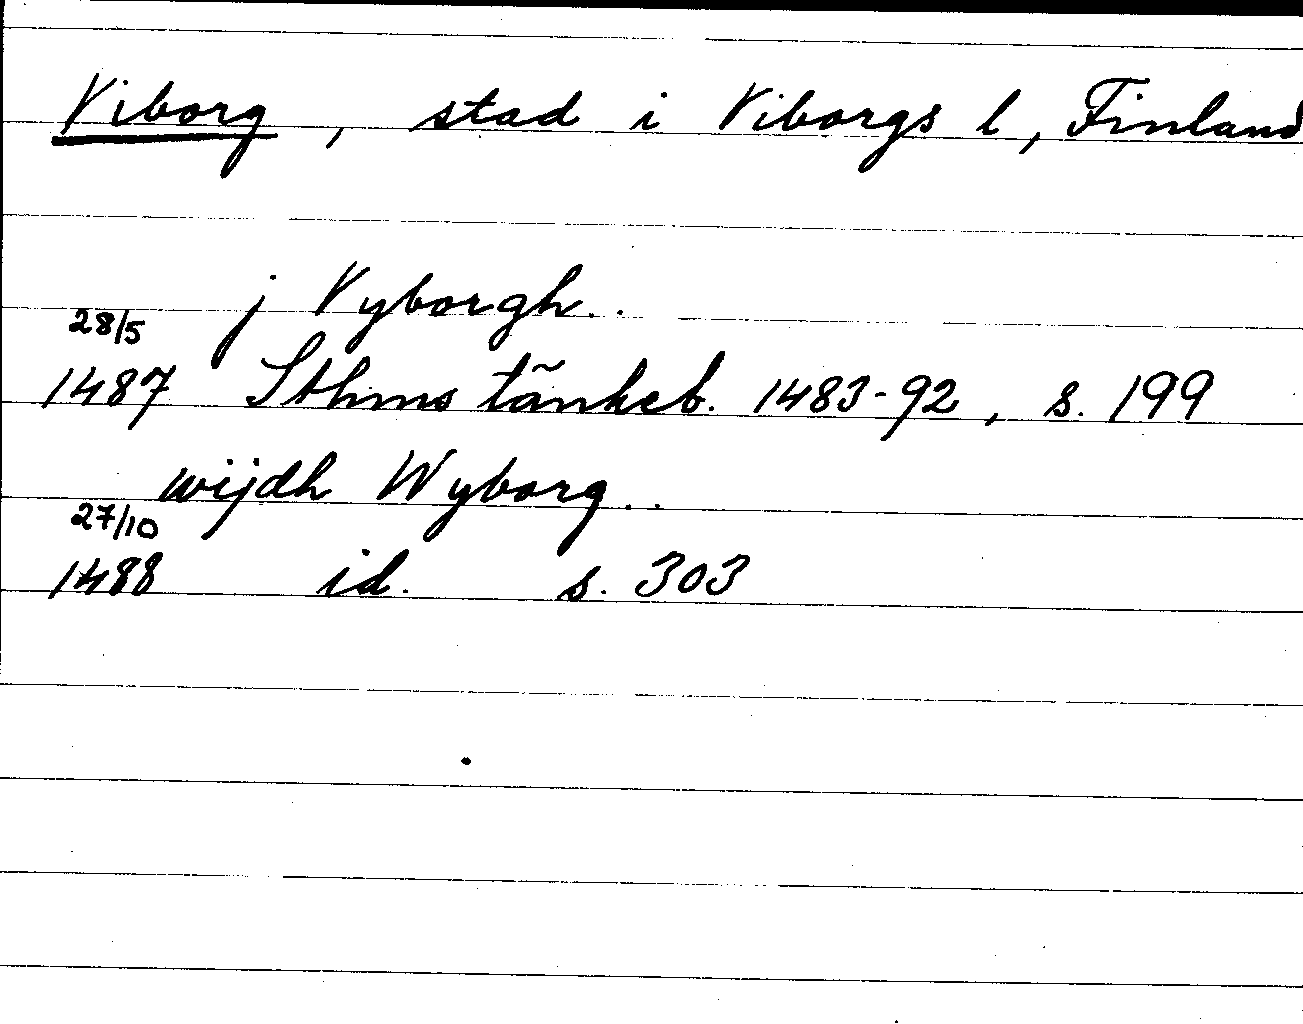 Viborg, stad i Viborgs l, Finland
j Vyborgh..
28/5
1487 Sthms tänkeb. 1483-92, s. 199
wijdh Wyborg..
27/10
1488 id. s. 303